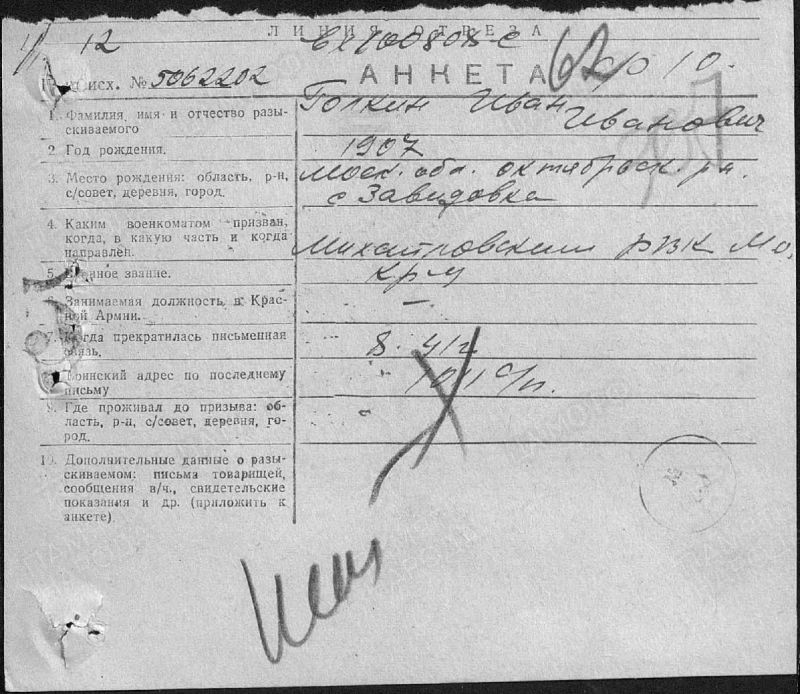 ЛИНИЯ ОТРЕЗА
12
исх. № 5062202 АНКЕТА
1. Фамилия, имя и отчество разы-
скиваемого
Голкин Иван
Иванович
2. Год рождения.
1907
3. Место рождения: область, р-н,
с/совет, деревня, город.
Моск. обл. октябрьск. р-н.
с Завидовка
4. Каким военкоматом призван,
когда, в какую часть и когда
направлен.
РВК М.о.
5. Военное звание.
кр-ц
6. Занимаемая должность в Крас-
ной Армии.
—
7. Когда прекратилась письменная
связь.
8. 41 г.
8. Воинский адрес по последнему
письму
с/п.
9. Где проживал до призыва: об-
ласть, р-н, с/совет, деревня, го-
род.
10. Дополнительные данные о разы-
скиваемом: письма товарищей,
сообщения в/ч., свидетельские
показания и др. (приложить к
анкете)